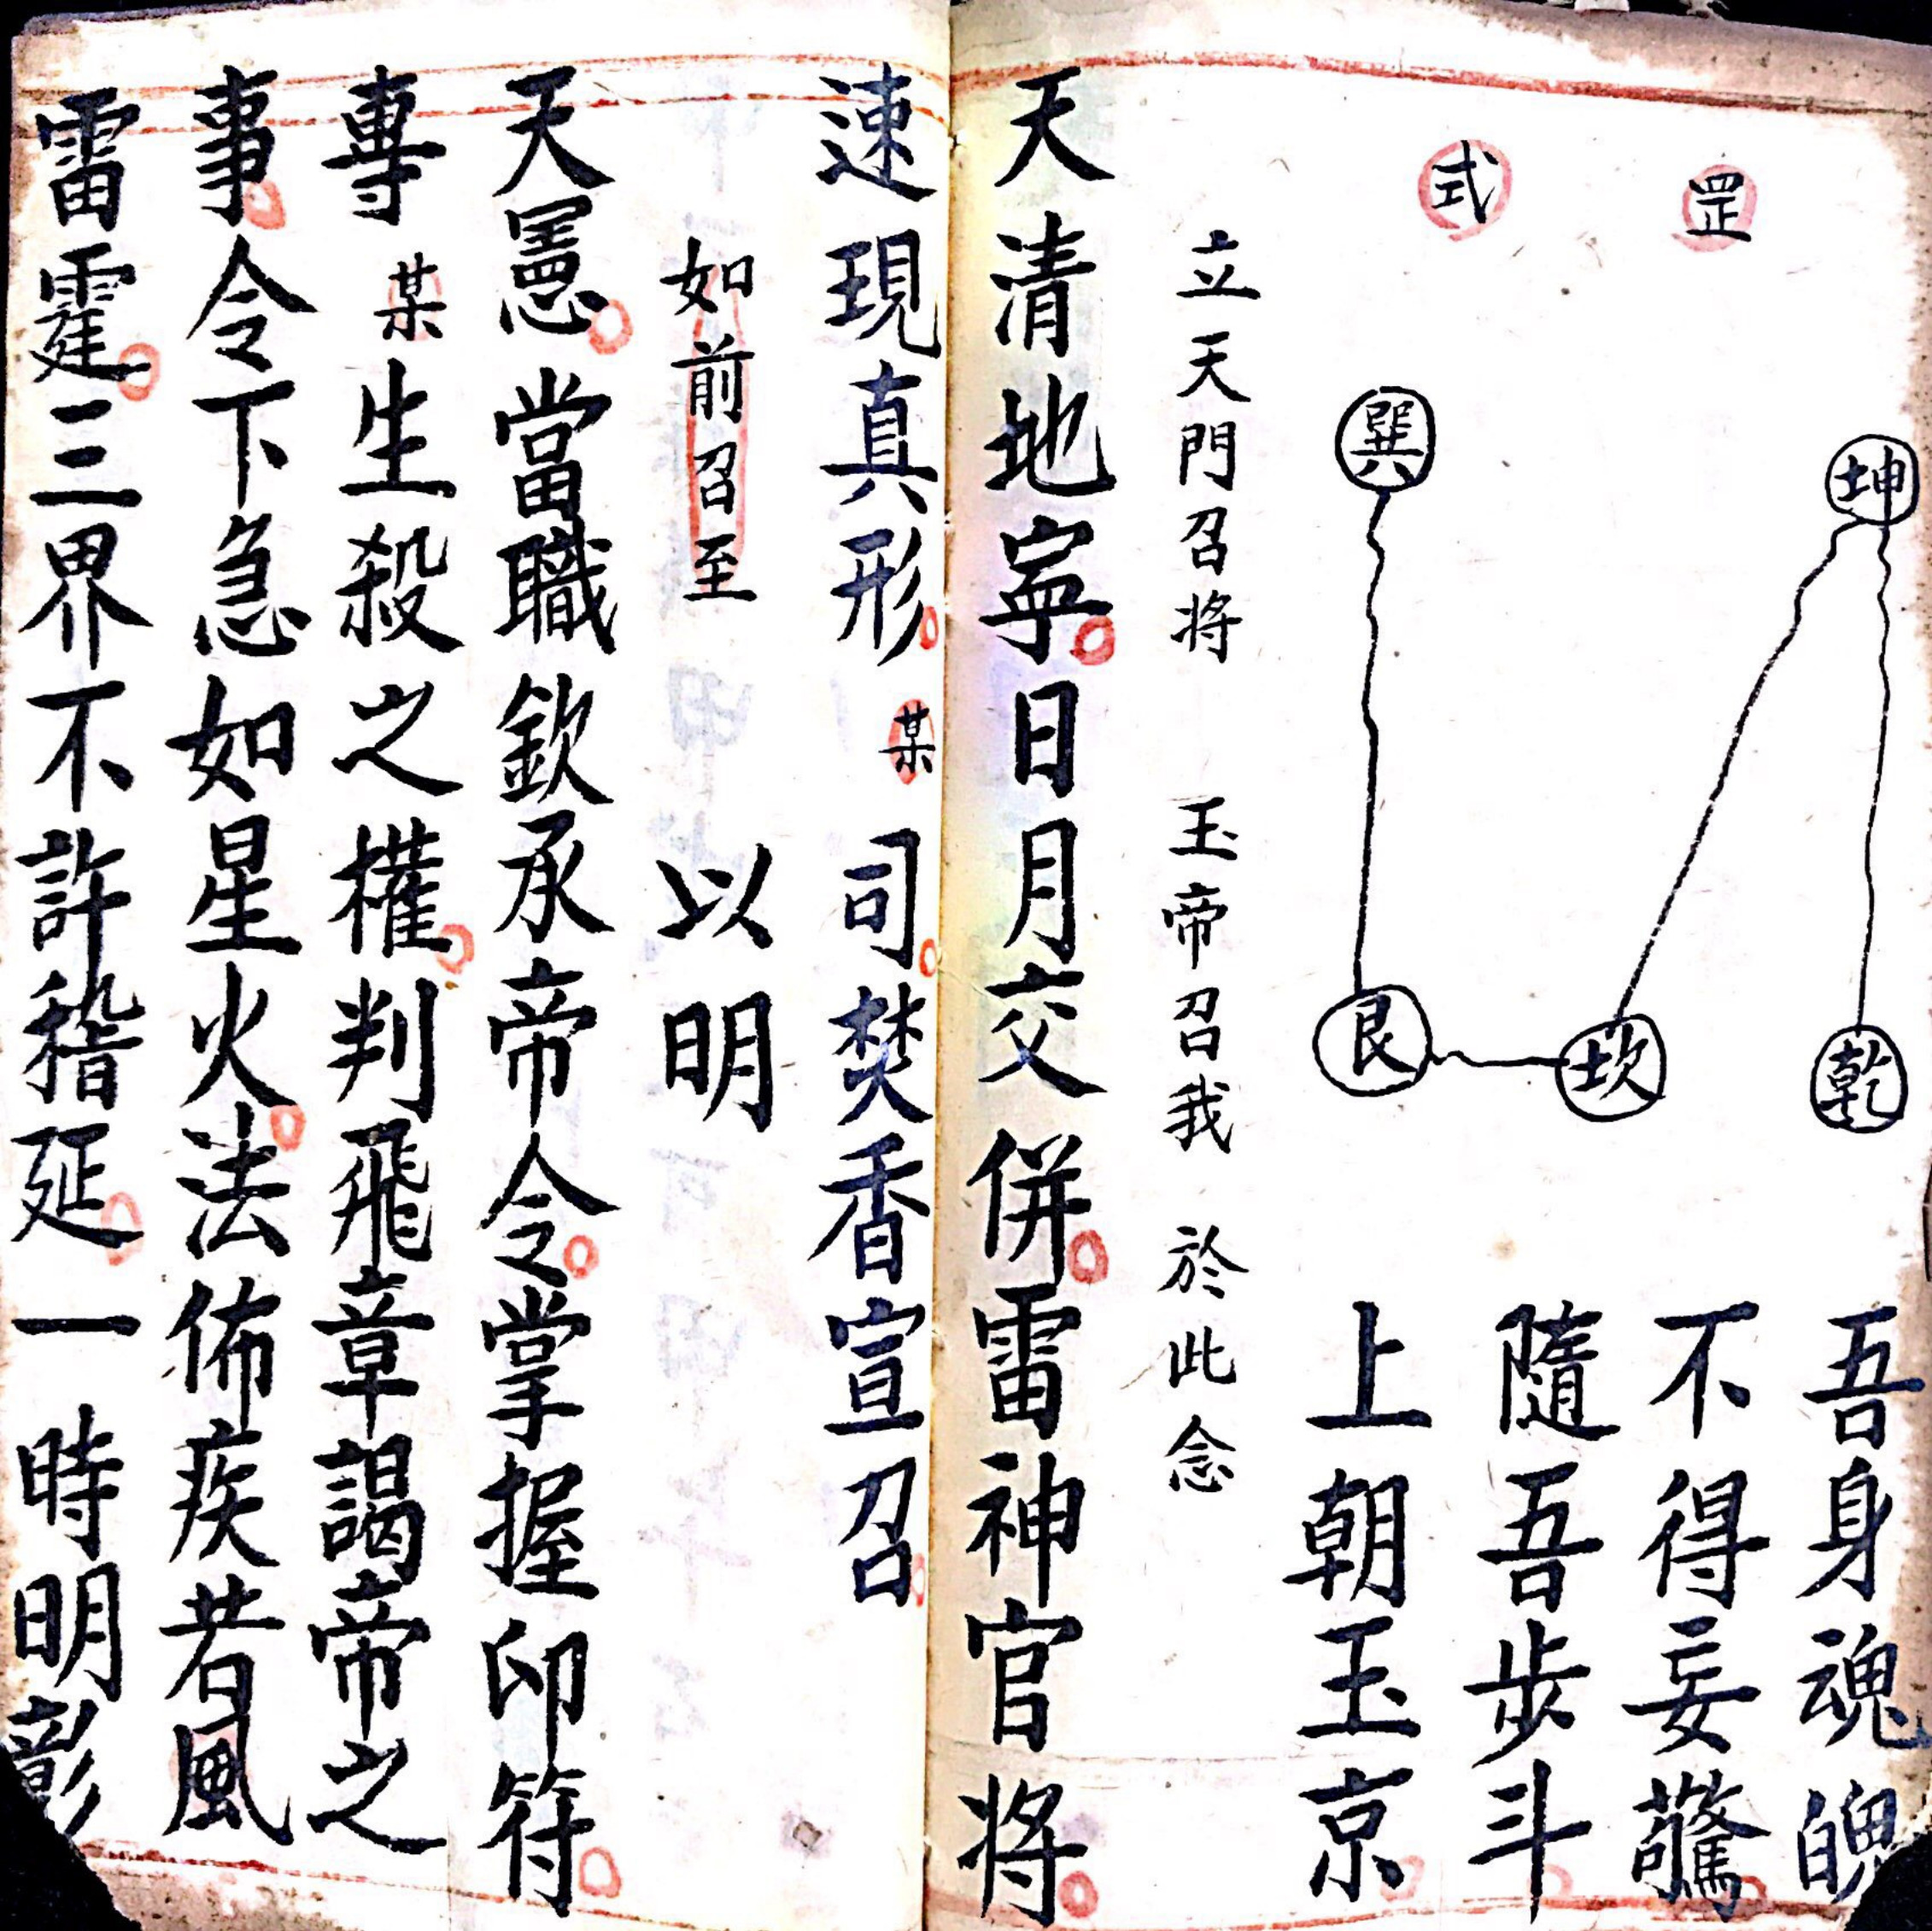 罡
式
坤
乾
坎
艮
巽
吾身魂魄
不得妄驚
隨吾步斗
上朝玉京
立天門召將 玉帝召我 於此念
天清地寕日月交併雷神官將
速現真形某司焚香宣召
如前召至 以明
天憲當職欽承帝令掌握印符
專某生殺之權判飛章謁帝之
事令下急如星火法佈疾若風
雷霆三界不許稽延一時明彰